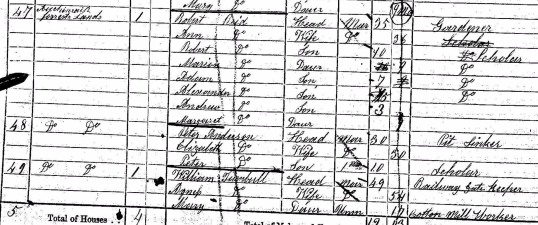 Mary do Daur
47 1 Robert Reid Head Mar 35 Gardener
Ann do Wife do 36
Robert do Son 10 Scholar
Marion do Daur do
Adam do Son 7 do
Alexander do Son do
Andrew do Son 3
Margaret do Daur
48 do do Peter Anderson Head Mar 30 Pit Sinker
Elizabeth do Wife do 30
Peter do Son 10 Scholar
49 do do 1 William Head Mar 49 Railway Gate Keeper
Agnes do Wife do 54
Mary do Daur Unm 17 Cotton Mill Worker
5 Total of Houses 4